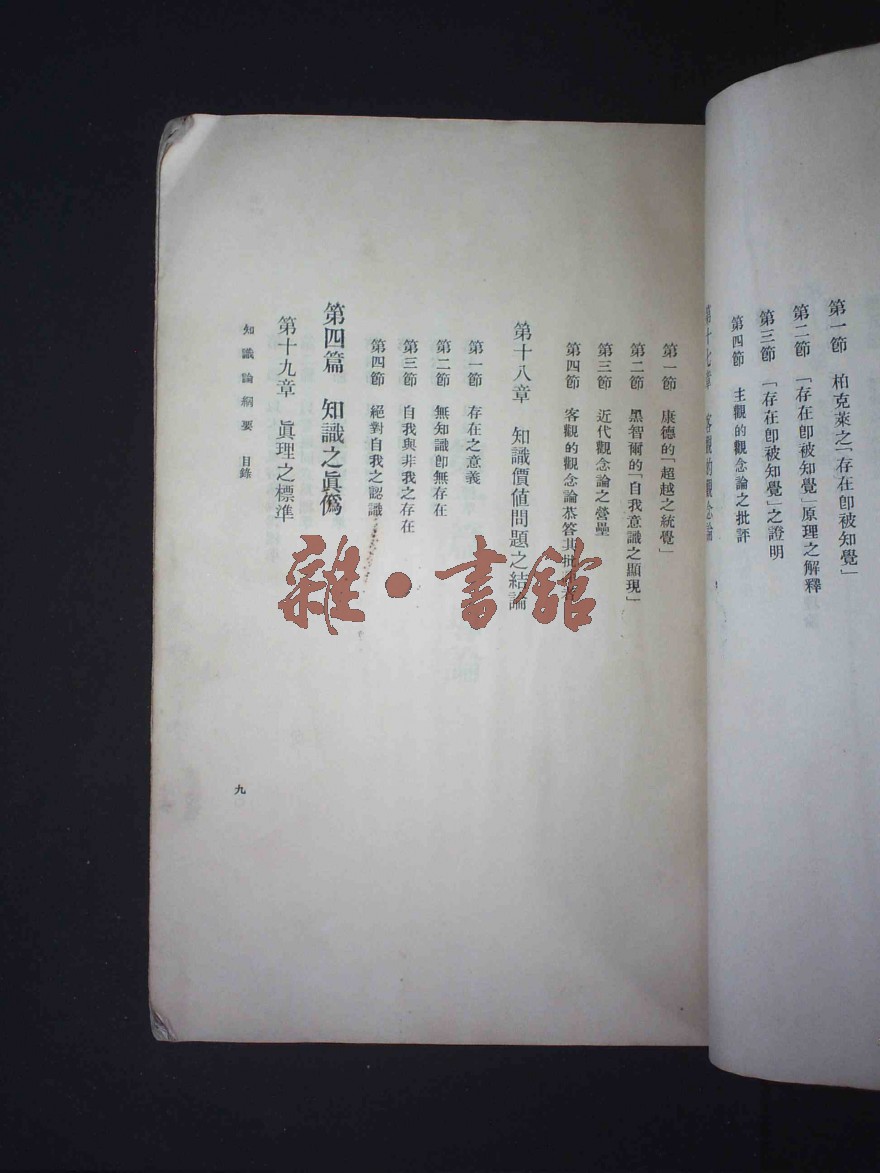 第一節 柏克萊之「存在卽被知覺」
第二節 「存在卽被知覺」原理之解釋
第三節 「存在卽被知覺」之證明
第四節 主觀的觀念論之批評
第十七章 客觀的觀念論
第一節 康德的「超越之統覺」
第二節 黑智爾的「自我意識之顯現」
第三節 近代觀念論之營壘
第四節 客觀的觀念論恭答其批
第十八章 知識價値問題之結論
第一節 存在之意義
第二節 無知識卽無存在
第三節 自我與非我之存在
第四節 絕對自我之認識
第四篇 知識之眞僞
第十九章 眞理之標準
知識論綱要 目錄
九
雜·書館